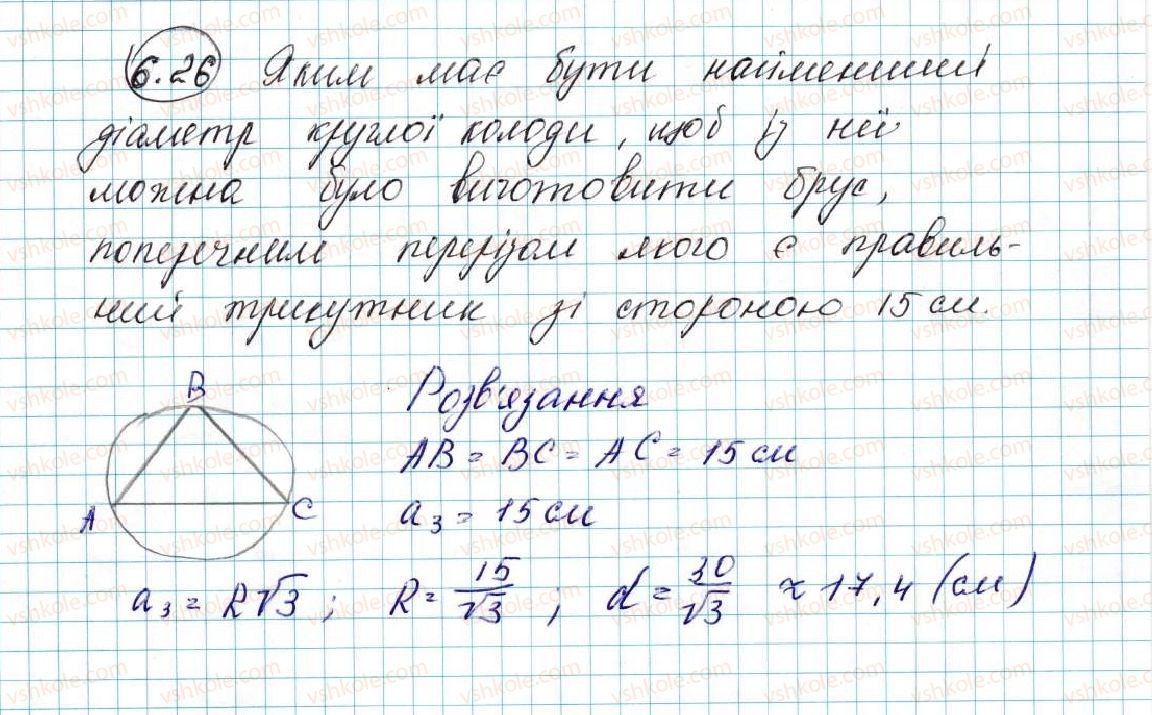 6.26 Яким має бути найменший
діаметр круглої колоди, щоб із неї
можна було виготовити брус,
поперечним перерізом якого є правиль-
ний трикутник зі стороною 15 см.
B
Розв'язання
AB = BC = AC = 15 см
A
C
a₃ = 15 см
a₃ = R√3 ; R = 15/√3 ; d = 30/√3 ≈ 17,4 (см)
vshkole.com